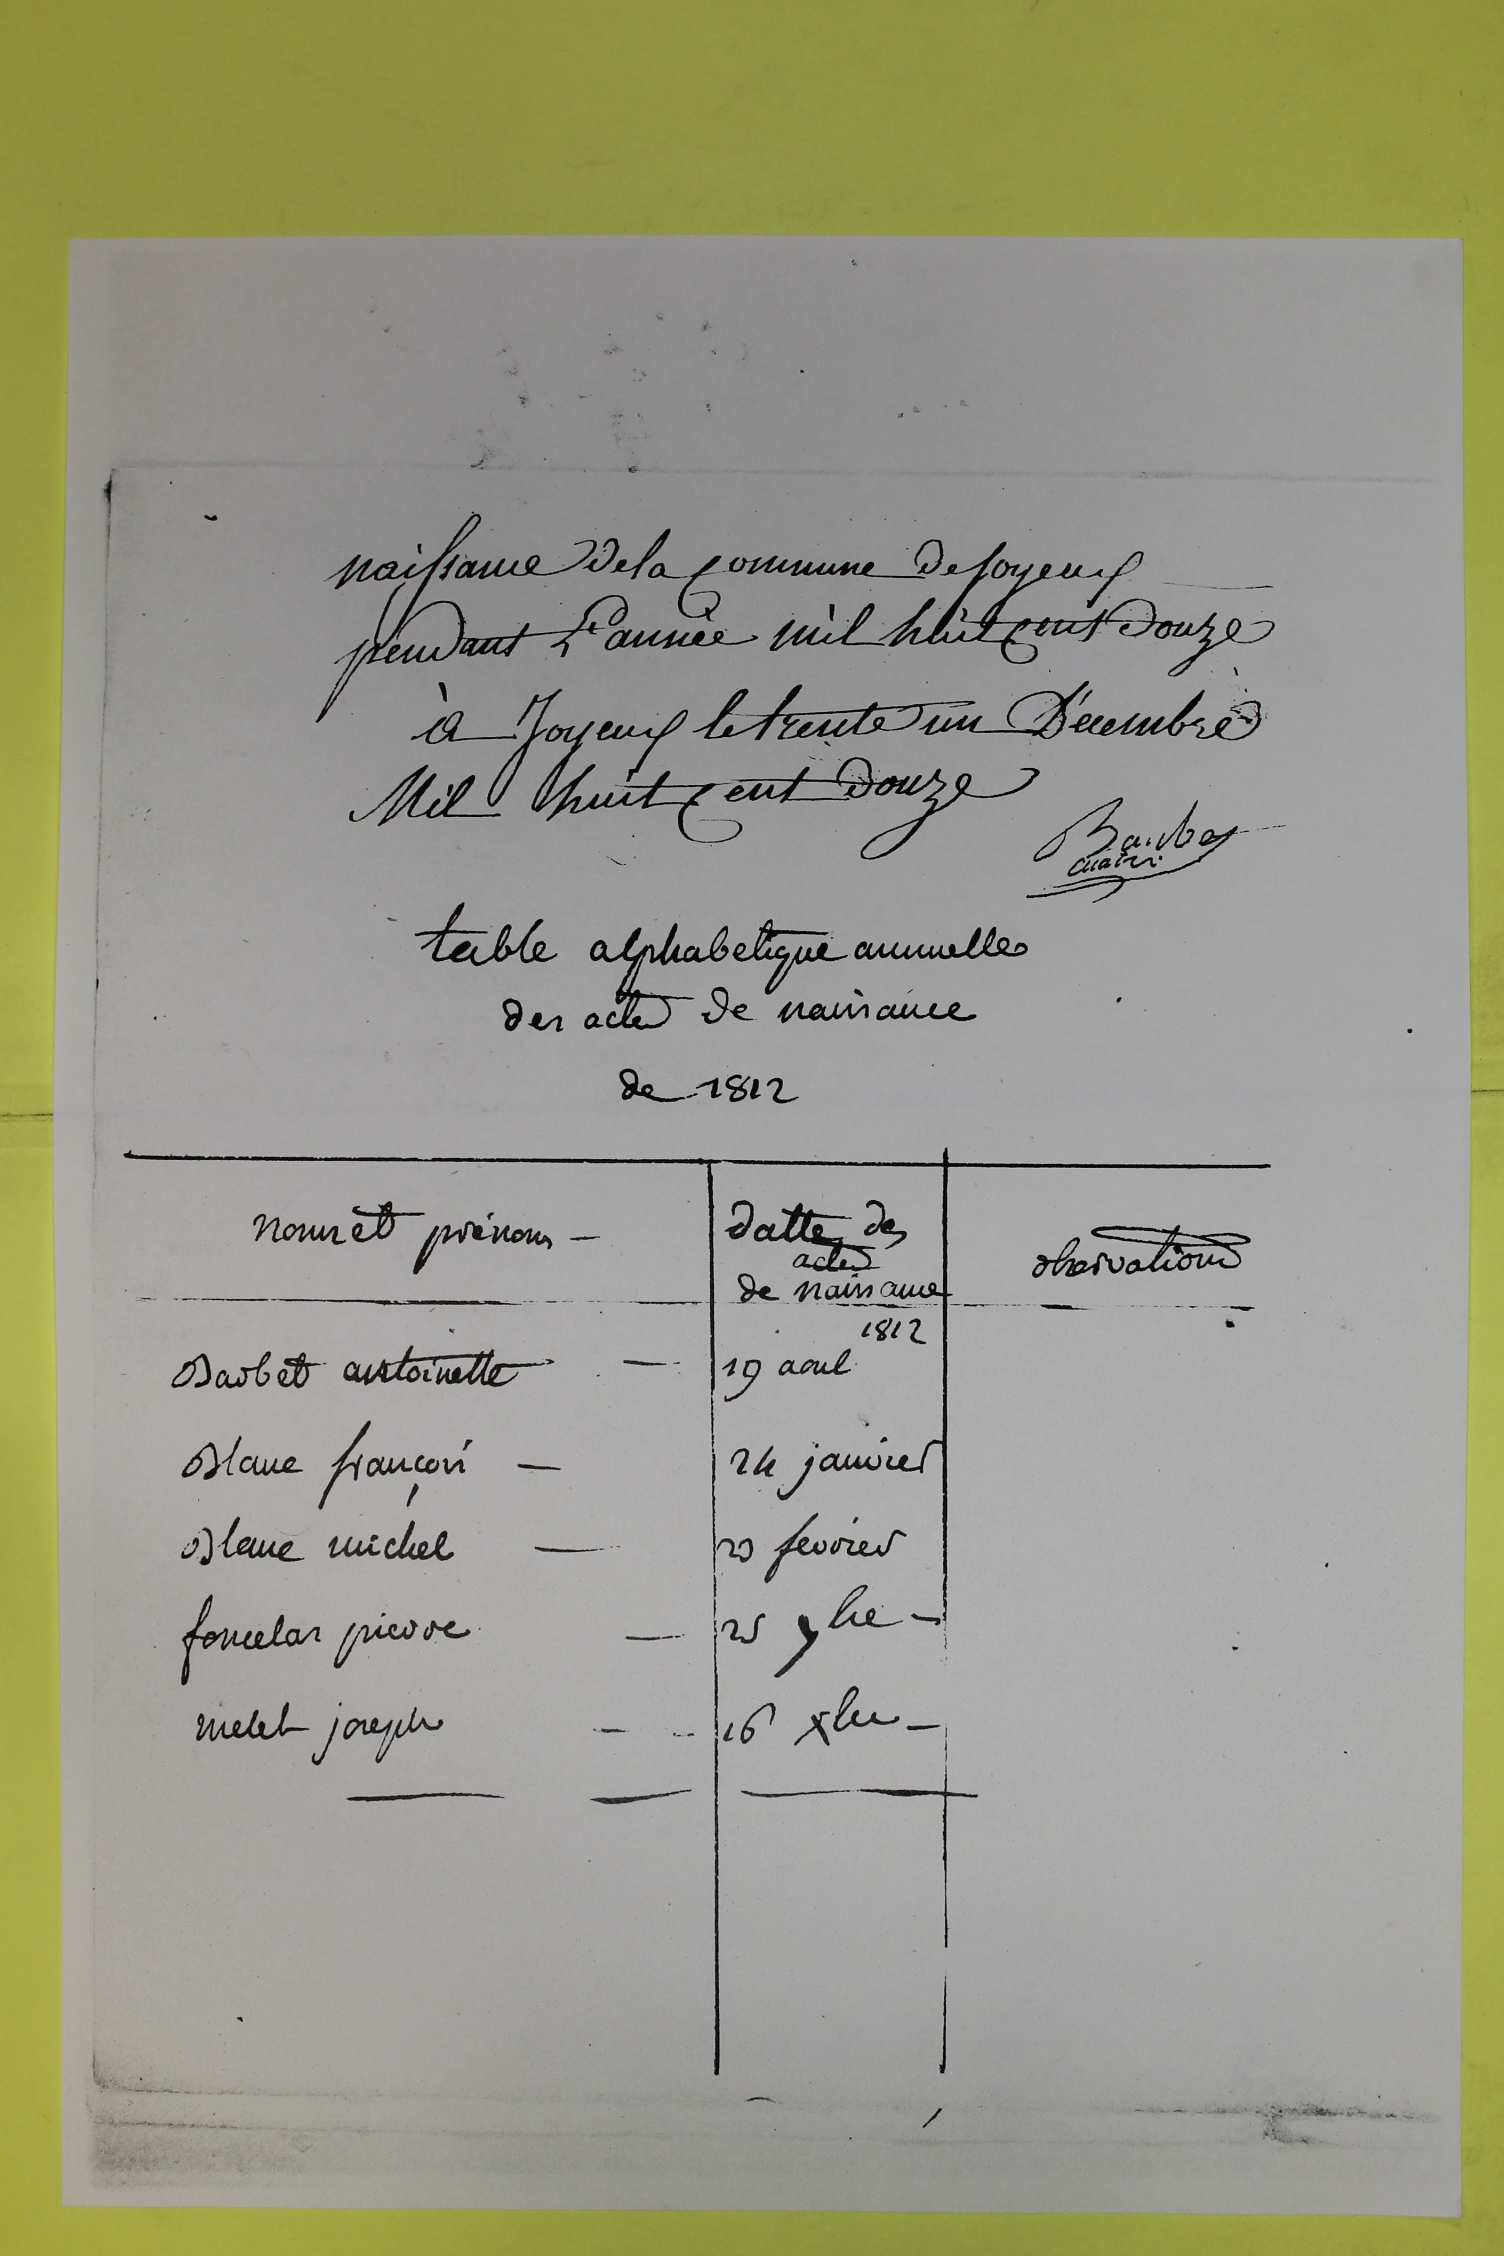 naissance de la Commune de Joyeux
pendant L'année mil huit Cent Douze
à Joyeux le trente un Décembre
Mil huit Cent Douze
Barbet
maire
table alphabetique annuelle
des actes de naissance
de 1812
noms et prénoms — Datte des observations
actes
de naissance
1812
Barbet antoinette — 19 aout
Blanc françois — 24 janvier
Blanc michel — fevrier
pierre — 25 9bre —
joseph — 16 xbre —